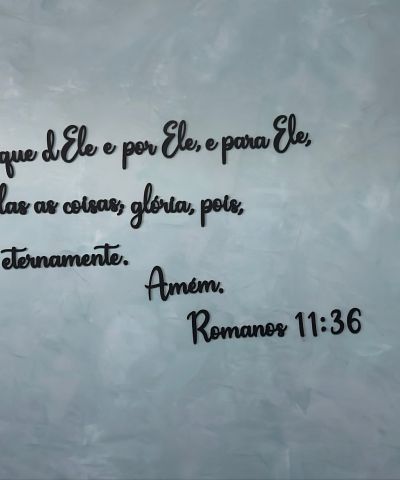 que dEle e por Ele, e para Ele,
las as coisas; glória, pois,
eternamente.
Amém.
Romanos 11:36